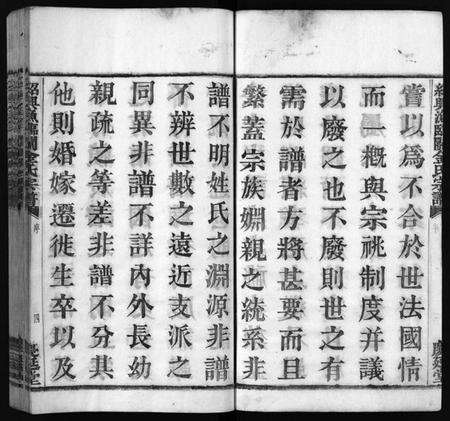 嘗以爲不合於世法國情
而一概與宗祧制度并議
以廢之也不廢則世之有
需於譜者方將甚要而且
繁蓋宗族婣親之統系非
譜不明姓氏之淵源非譜
不辨世數之遠近支派之
同異非譜不詳內外長幼
親疏之等差非譜不分其
他則婚嫁遷徙生卒以及
紹興漁臨關金氏宗譜
序
四